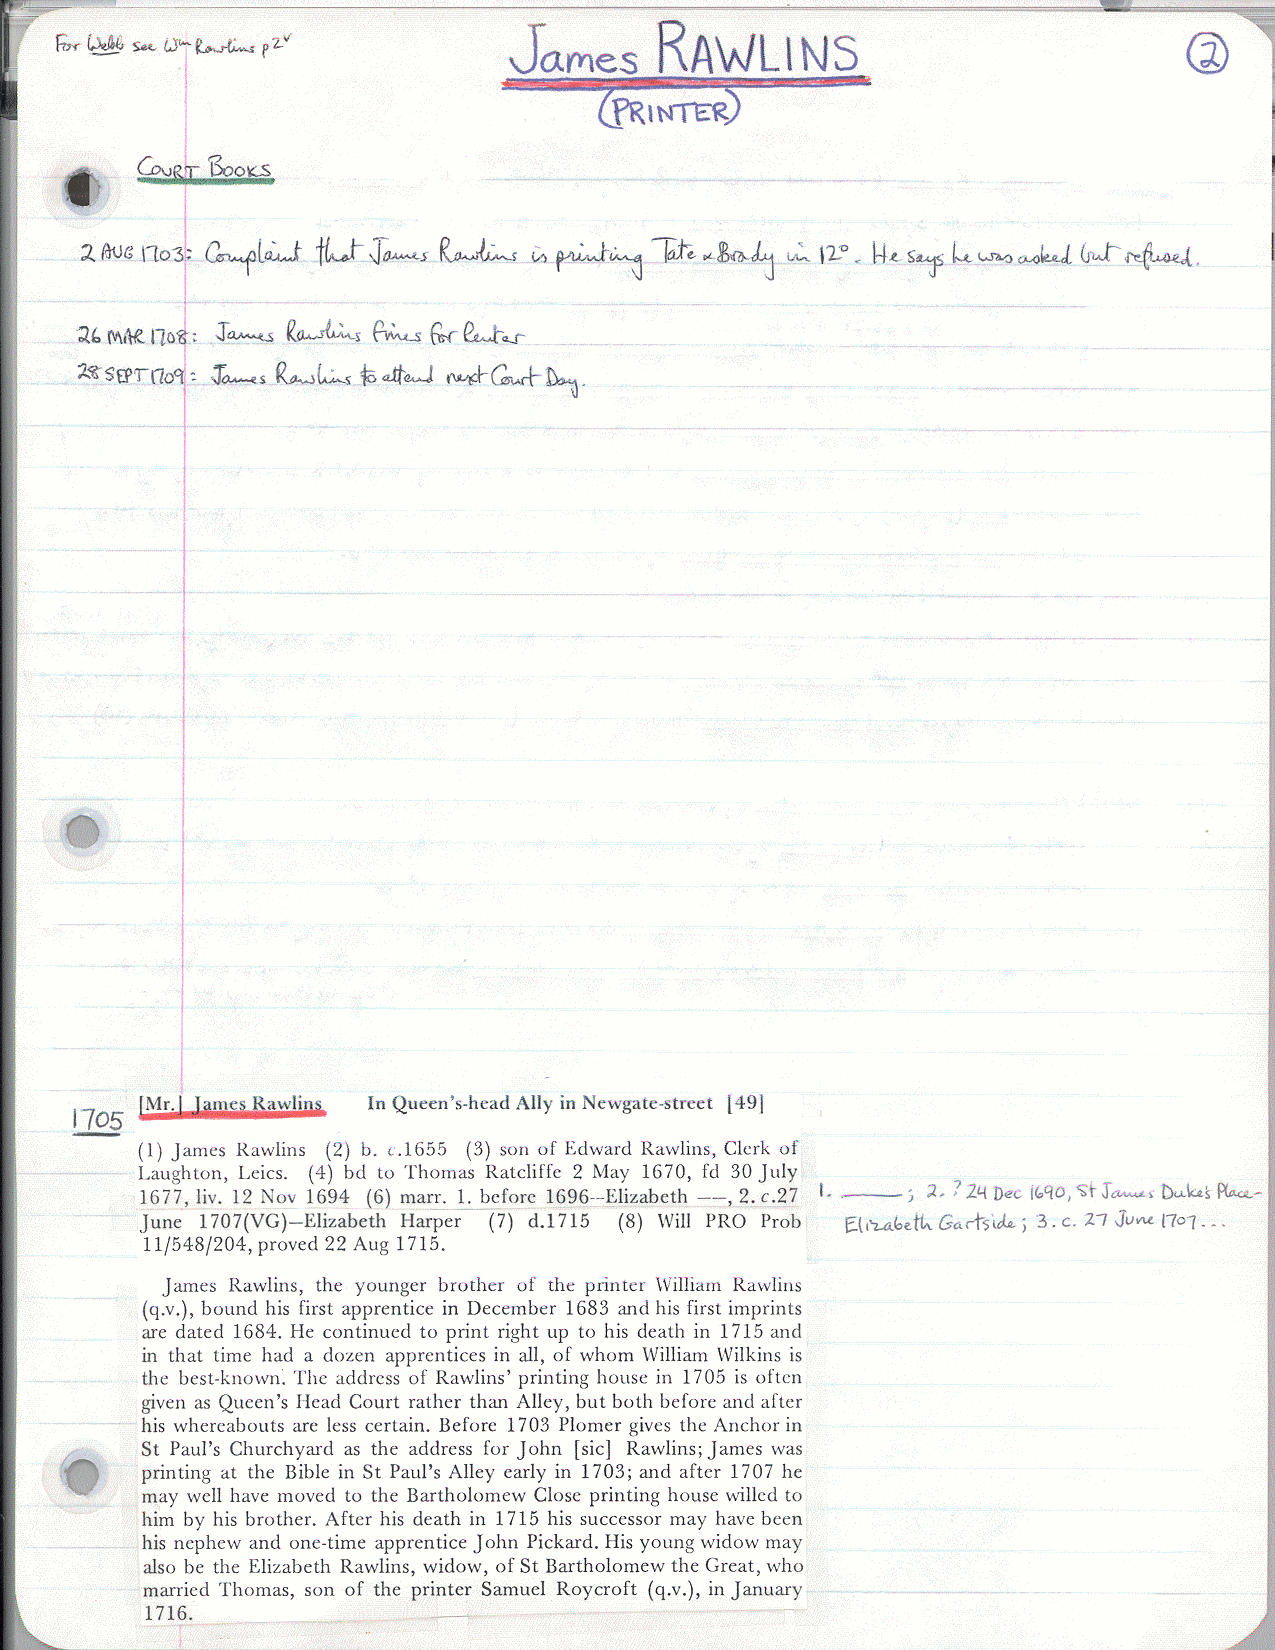 For Webb see Wm Rawlins p2v
James RAWLINS
2
(PRINTER)
COURT BOOKS
2 AUG 1703: Complaint that James Rawlins is printing Tate & Brady in 12o. He says he was asked but refused.
26 MAR 1708: James Rawlins fines for Renter
28 SEPT 1709: James Rawlins to attend next Court Day.
1705
[Mr.] James Rawlins In Queen's-head Ally in Newgate-street [49]
(1) James Rawlins (2) b. c.1655 (3) son of Edward Rawlins, Clerk of
Laughton, Leics. (4) bd to Thomas Ratcliffe 2 May 1670, fd 30 July
1677, liv. 12 Nov 1694 (6) marr. 1. before 1696--Elizabeth —–, 2. c.27
June 1707(VG)—Elizabeth Harper (7) d.1715 (8) Will PRO Prob
11/548/204, proved 22 Aug 1715.
1. ——— ; 2. ? 24 Dec 1690, St James Duke's Place-
Elizabeth Gartside ; 3. c. 27 June 1707...
James Rawlins, the younger brother of the printer William Rawlins
(q.v.), bound his first apprentice in December 1683 and his first imprints
are dated 1684. He continued to print right up to his death in 1715 and
in that time had a dozen apprentices in all, of whom William Wilkins is
the best-known. The address of Rawlins' printing house in 1705 is often
given as Queen's Head Court rather than Alley, but both before and after
his whereabouts are less certain. Before 1703 Plomer gives the Anchor in
St Paul's Churchyard as the address for John [sic] Rawlins; James was
printing at the Bible in St Paul's Alley early in 1703; and after 1707 he
may well have moved to the Bartholomew Close printing house willed to
him by his brother. After his death in 1715 his successor may have been
his nephew and one-time apprentice John Pickard. His young widow may
also be the Elizabeth Rawlins, widow, of St Bartholomew the Great, who
married Thomas, son of the printer Samuel Roycroft (q.v.), in January
1716.